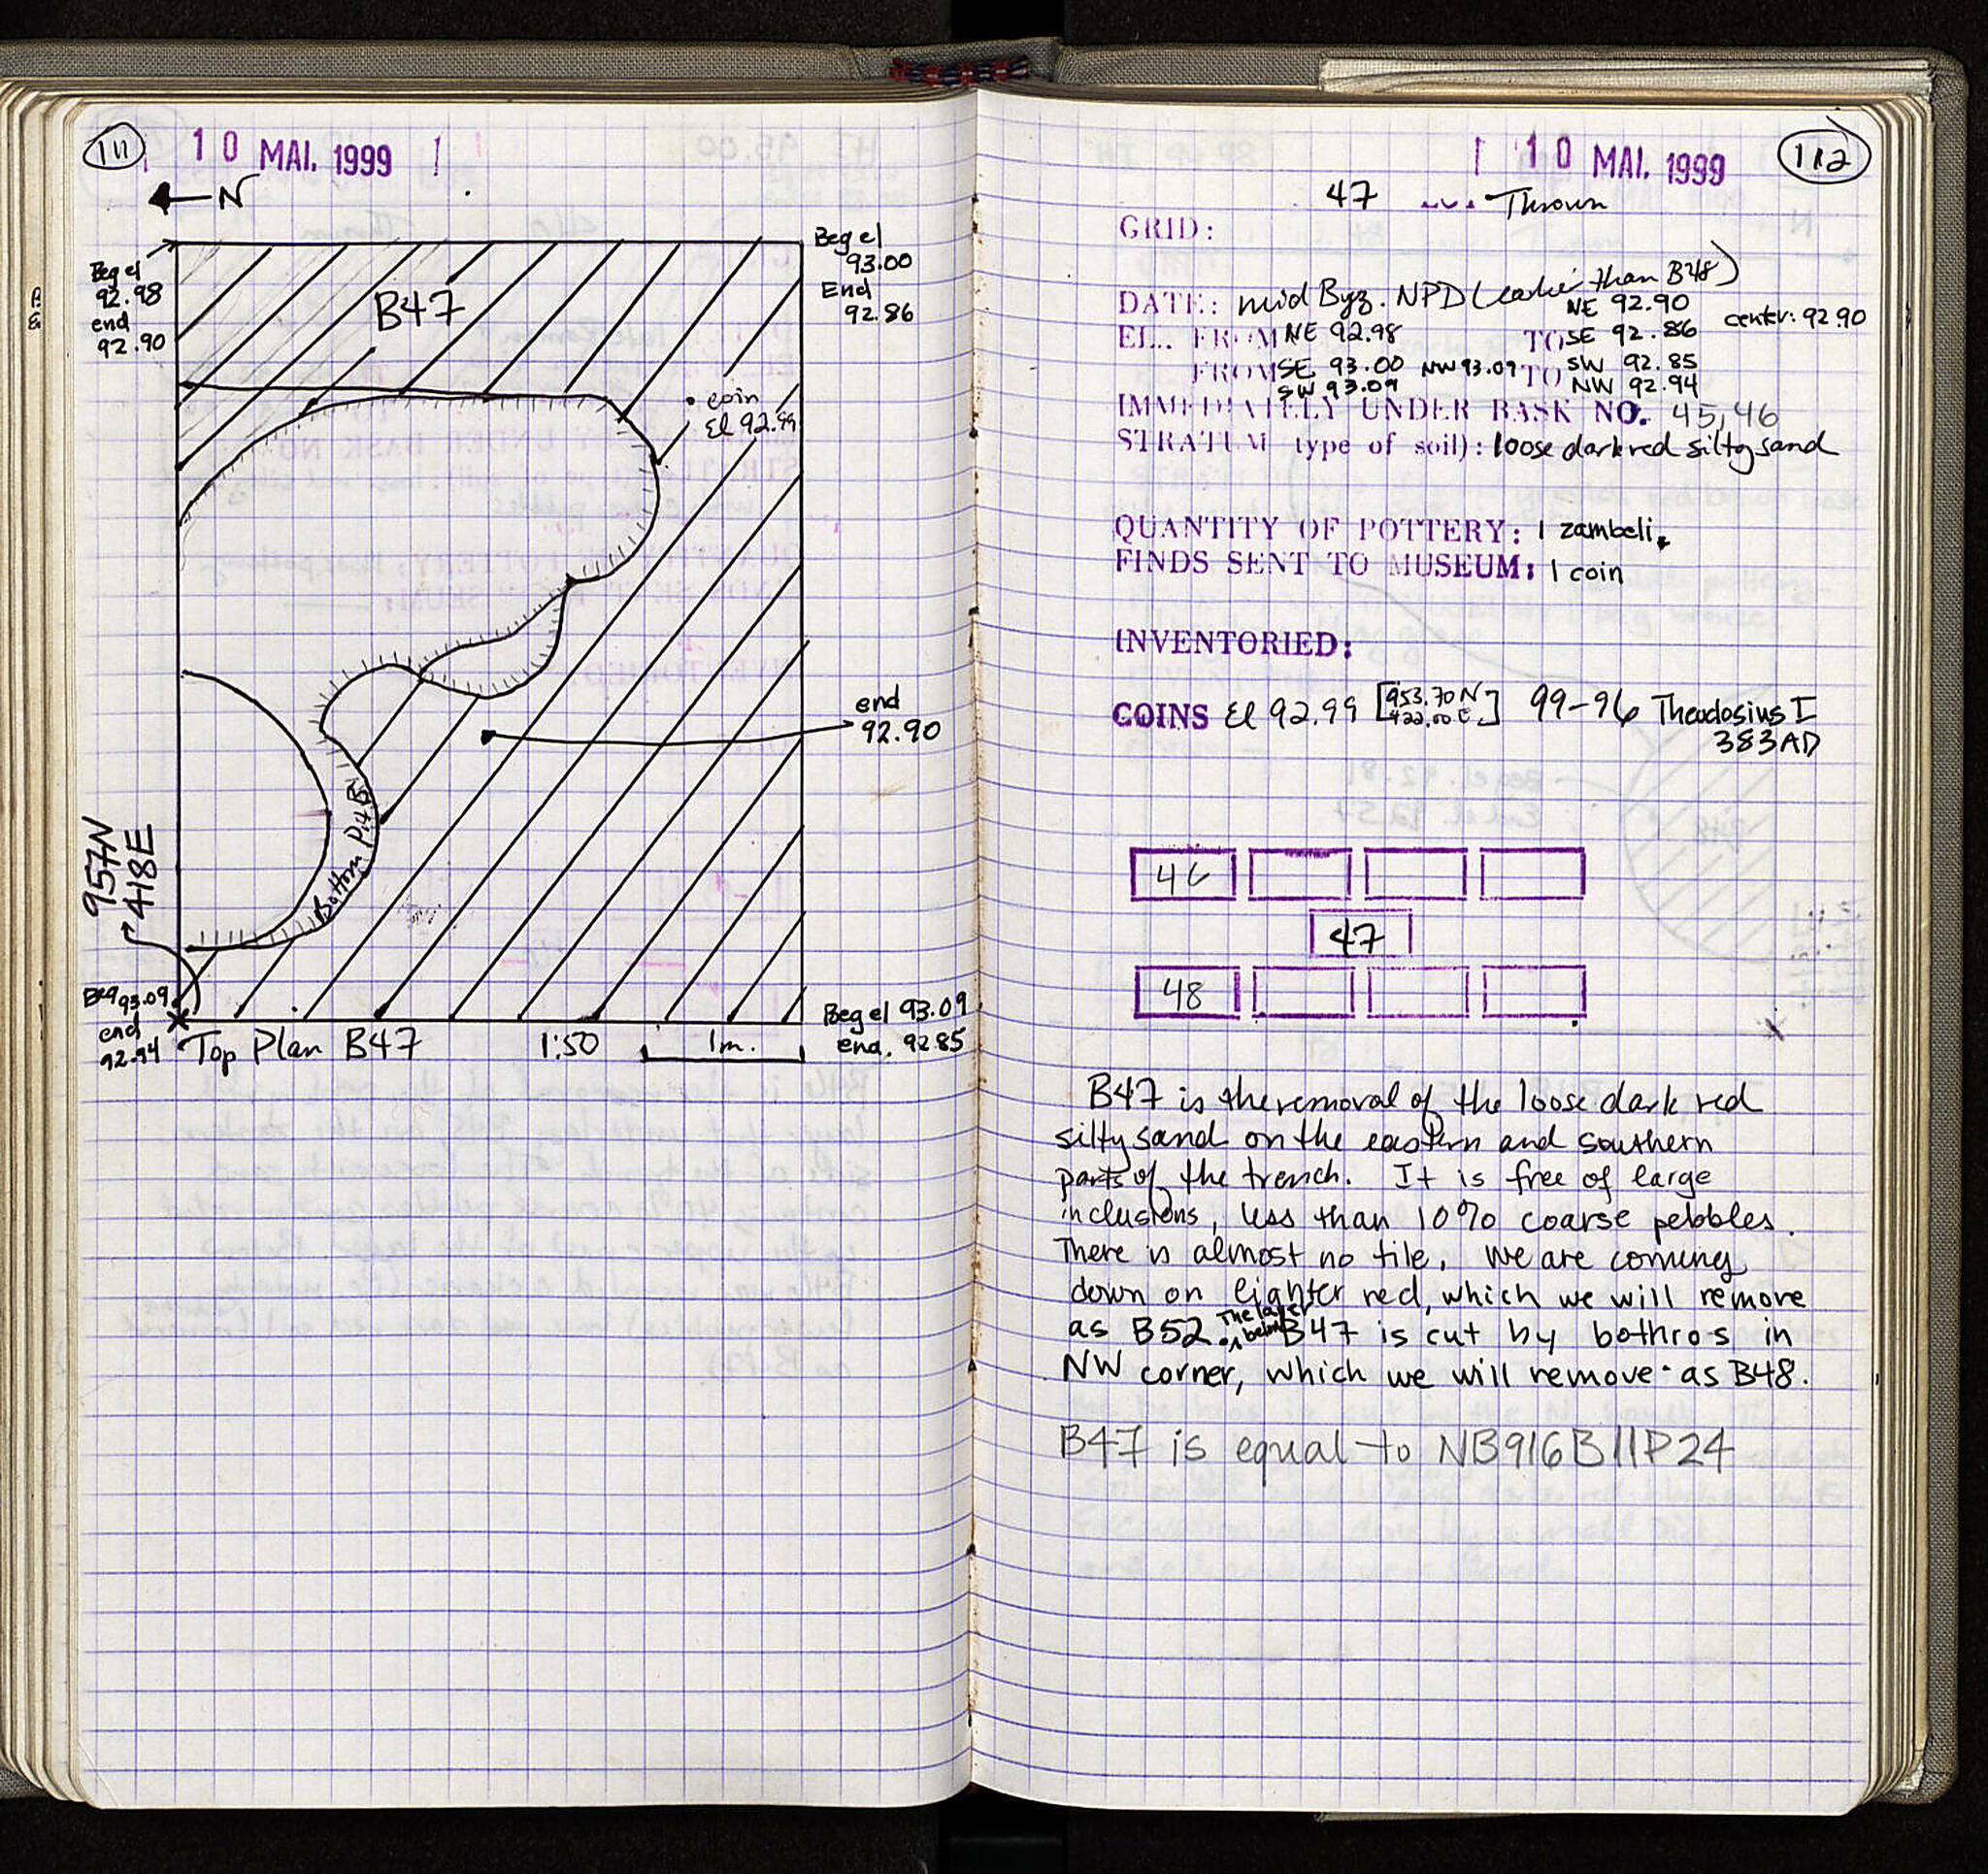 111
10 MAI. 1999
N
Beg el
92.98
end
92.90
B47
Beg el
93.00
End
92.86
coin
El 92.99
end
92.90
Bottom P.46
957N
418E
Beg 93.09
end
92.94
Top Plan B47 1:50 1m.
Beg el 93.09
end. 92.85
10 MAI. 1999
112
47 Thrown
GRID:
DATE: mid Byz. NPD (earlier than B48)
NE 92.90 center: 92.90
EL. FROM NE 92.98 TO SE 92.86
FROM SE 93.00 NW 93.09 TO SW 92.85
SW 93.09 NW 92.94
IMMEDIATELY UNDER BASK NO. 45, 46
STRATUM type of soil): loose dark red silty sand
QUANTITY OF POTTERY: 1 zambeli.
FINDS SENT TO MUSEUM: 1 coin
INVENTORIED:
COINS El 92.99 [953.70 N 422.00 E] 99-96 Theodosius I
383 AD
46
47
48
B47 is the removal of the loose dark red
silty sand on the eastern and southern
parts of the trench. It is free of large
inclusions, less than 10% coarse pebbles.
There is almost no tile. We are coming
down on lighter red, which we will remove
as B52. The layer below B47 is cut by bothros in
NW corner, which we will remove as B48.
B47 is equal to NB916 B11 P24